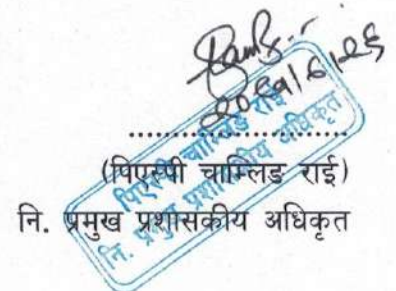 ........................
(पिएस्पी चाम्लिङ राई)
नि. प्रमुख प्रशासकीय अधिकृत
पिएस्पी चाम्लिङ राई
नि. प्रमुख प्रशासकीय अधिकृत